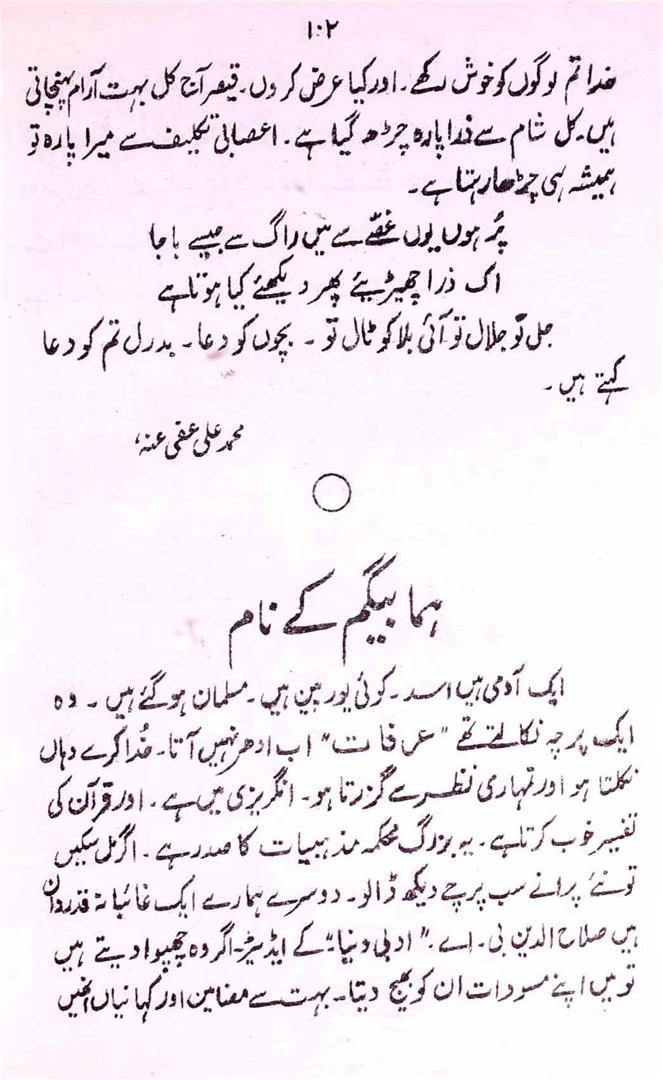 ۱۰۲
خدا تم لوگوں کو خوش رکھے۔ اور کیا عرض کروں۔ قیصر آج کل بہت آرام پہنچاتی
ہیں۔ کل شام سے ذرا پارہ چڑھ گیا ہے۔ اعصابی تکلیف سے میرا پارہ تو
ہمیشہ ہی چڑھا رہتا ہے۔
پُر ہوں یوں غصّے سے میں راگ سے جیسے باجا
اک ذرا چھیڑیئے پھر دیکھئے کیا ہوتا ہے
جل تو جلال تو آئی بلا کو ٹال تو۔ بچوں کو دعا۔ بدرل تم کو دعا
کہتے ہیں۔
محمد علی عفی عنہ،
ہما بیگم کے نام
ایک آدمی ہیں اسد۔ کوئی یورپین ہیں۔ مسلمان ہو گئے ہیں۔ وہ
ایک پرچہ نکالتے تھے "عرفات" اب ادھر نہیں آتا۔ خُدا کرے وہاں
نکلتا ہو اور تمہاری نظر سے گزرتا ہو۔ انگریزی میں ہے۔ اور قرآن کی
تفسیر خوب کرتا ہے۔ یہ بزرگ محکمہ مذہبیات کا صدر ہے۔ اگر مل سکیں
تو نئے پرانے سب پرچے دیکھ ڈالو۔ دوسرے ہمارے ایک غائبانہ قدردان
ہیں صلاح الدین بی۔ اے۔ "ادبی دنیا" کے ایڈیٹر۔ اگر وہ چھپوا دیتے ہیں
تو میں اپنے مسودات ان کو بھیج دیتا۔ بہت سے مضامین اور کہانیاں انھیں